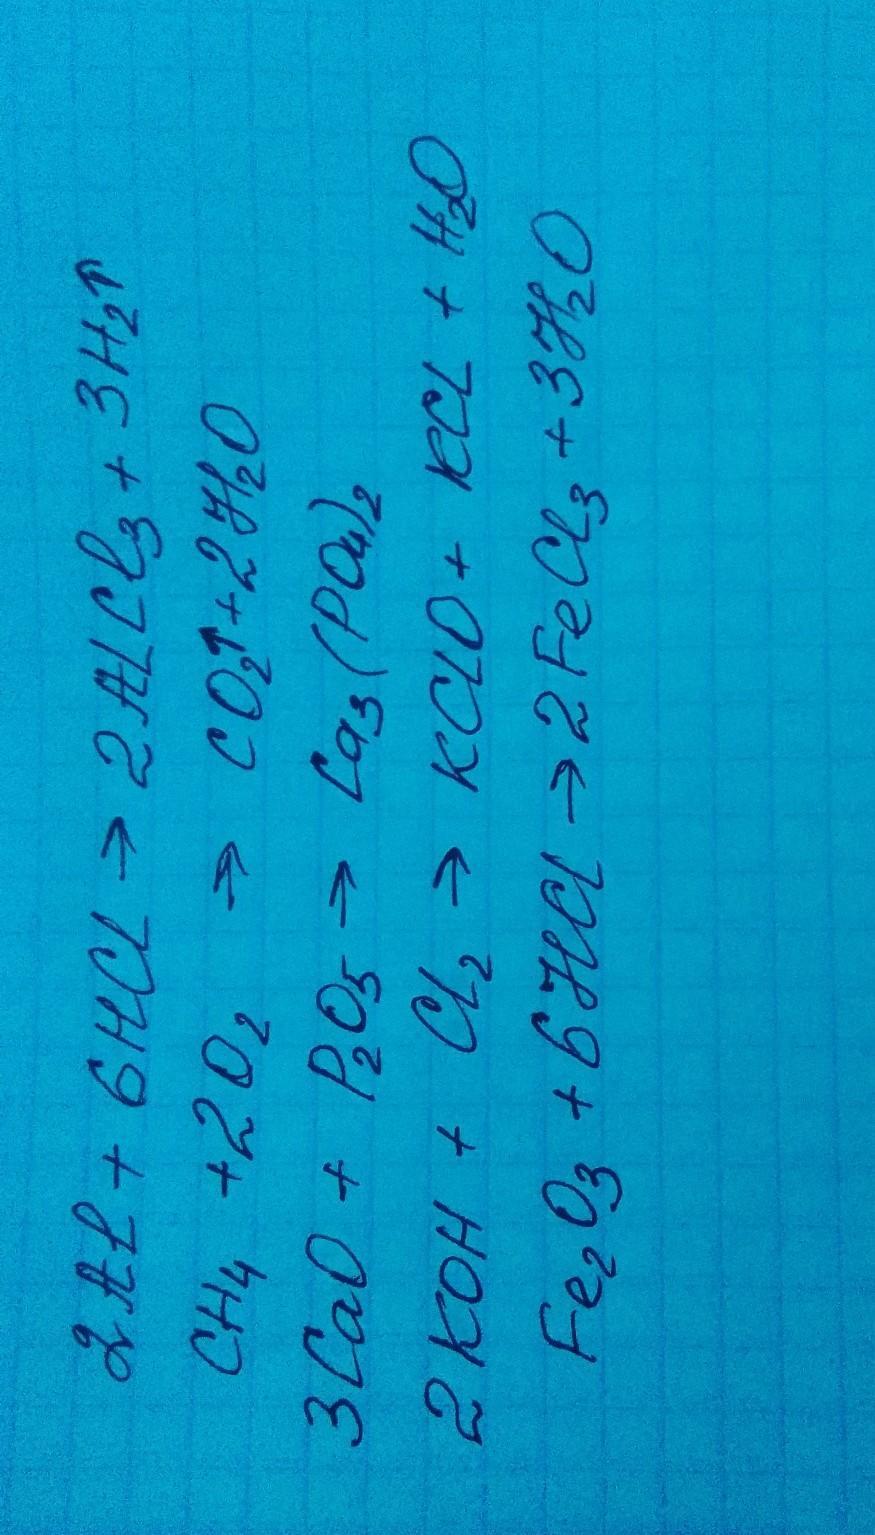 2Al + 6HCl → 2AlCl₃ + 3H₂↑
CH₄ + 2O₂ → CO₂↑ + 2H₂O
3CaO + P₂O₅ → Ca₃(PO₄)₂
2KOH + Cl₂ → KClO + KCl + H₂O
Fe₂O₃ + 6HCl → 2FeCl₃ + 3H₂O